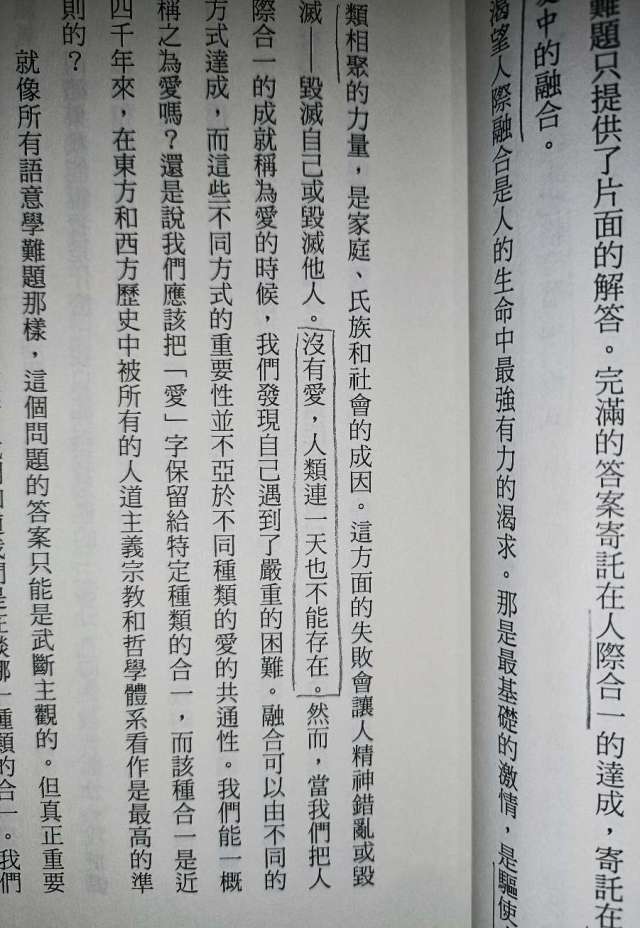 難題只提供了片面的解答。完滿的答案寄託在人際合一的達成，寄託在
中的融合。
渴望人際融合是人的生命中最強有力的渴求。那是最基礎的激情，是驅使
類相聚的力量，是家庭、氏族和社會的成因。這方面的失敗會讓人精神錯亂或毀
滅——毀滅自己或毀滅他人。沒有愛，人類連一天也不能存在。然而，當我們把人
際合一的成就稱為愛的時候，我們發現自己遇到了嚴重的困難。融合可以由不同的
方式達成，而這些不同方式的重要性並不亞於不同種類的愛的共通性。我們能一概
稱之為愛嗎？還是說我們應該把「愛」字保留給特定種類的合一，而該種合一是近
四千年來，在東方和西方歷史中被所有的人道主義宗教和哲學體系看作是最高的準
則的？
就像所有語意學難題那樣，這個問題的答案只能是武斷主觀的。但真正重要
我們是在談哪一種類的合一。我們